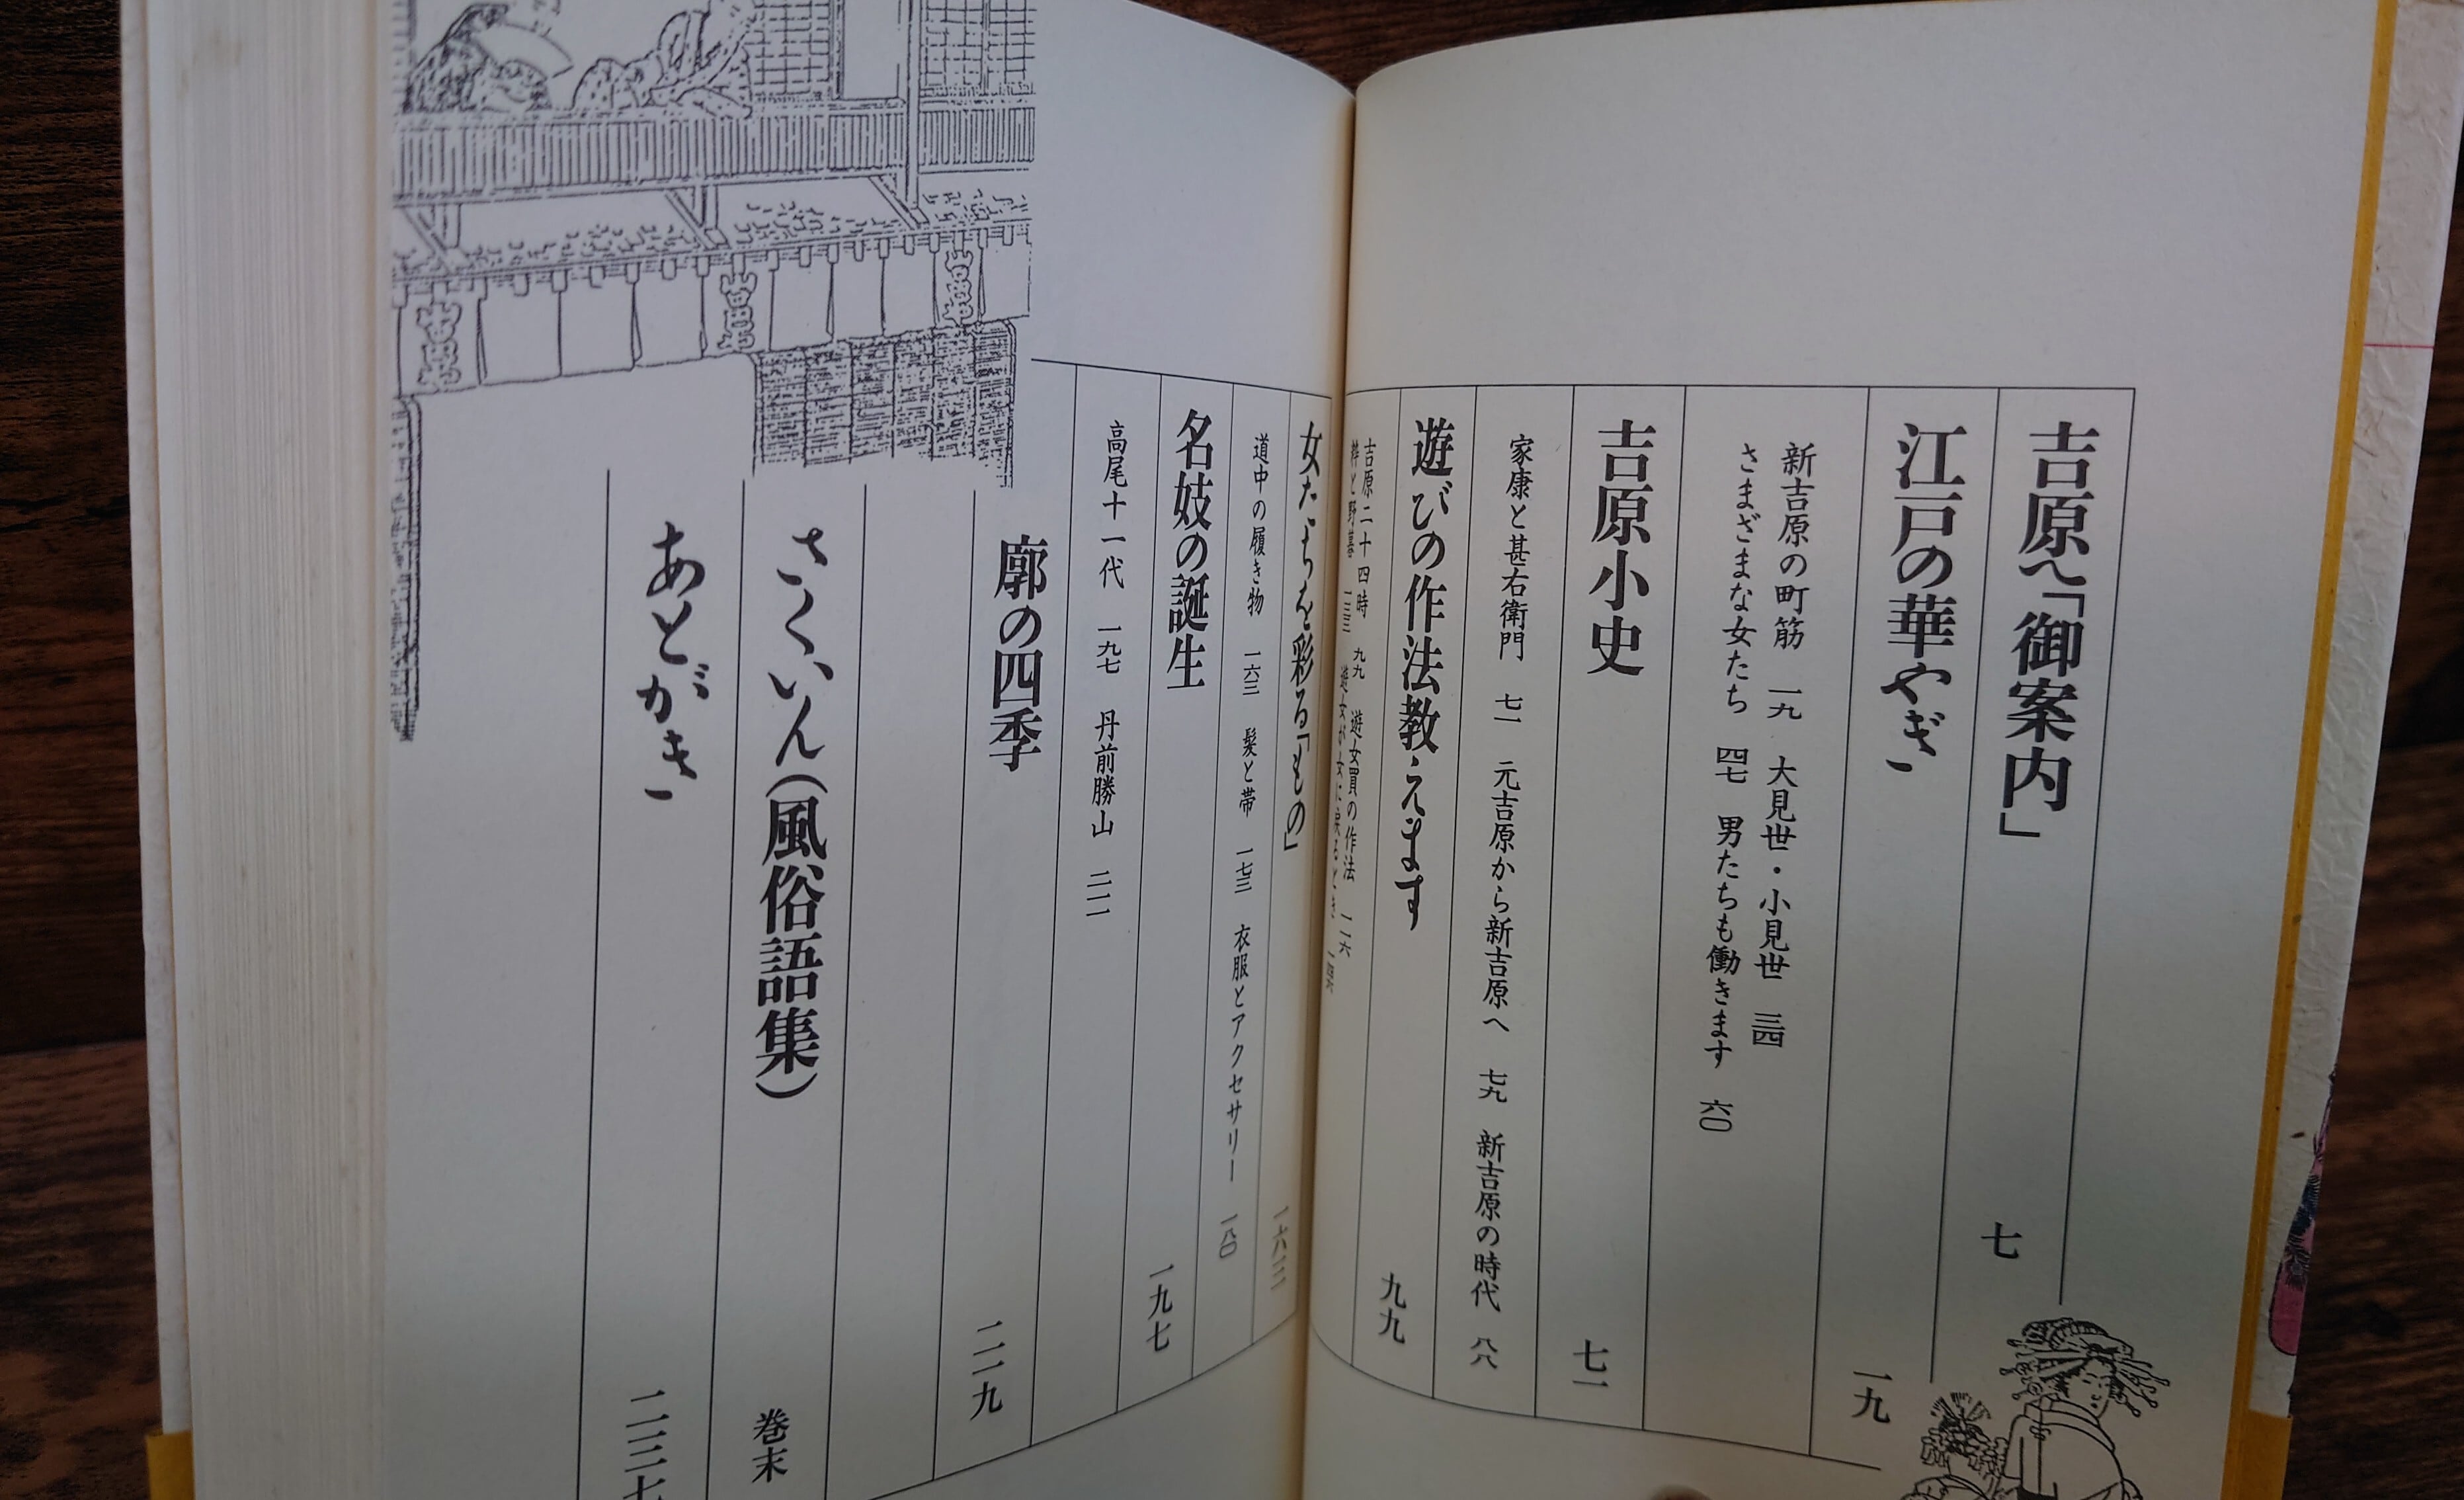 吉原へ「御案内」 七
江戸の華やぎ 一九
新吉原の町筋 一九 大見世・小見世 三四
さまざまな女たち 四七 男たちも働きます 六〇
吉原小史 七一
家康と甚右衛門 七一 元吉原から新吉原へ 七九 新吉原の時代 八八
遊びの作法教えます 九九
吉原二十四時 九九 遊女買の作法 一一六
粋と野暮 一三三 遊女が女に戻るとき
女たちを彩る「もの」 一六三
道中の履き物 一六三 髪と帯 一七三 衣服とアクセサリー 一八〇
名妓の誕生 一九七
高尾十一代 一九七 丹前勝山 二一一
廓の四季 二一九
さくいん(風俗語集) 巻末
あとがき 二三七